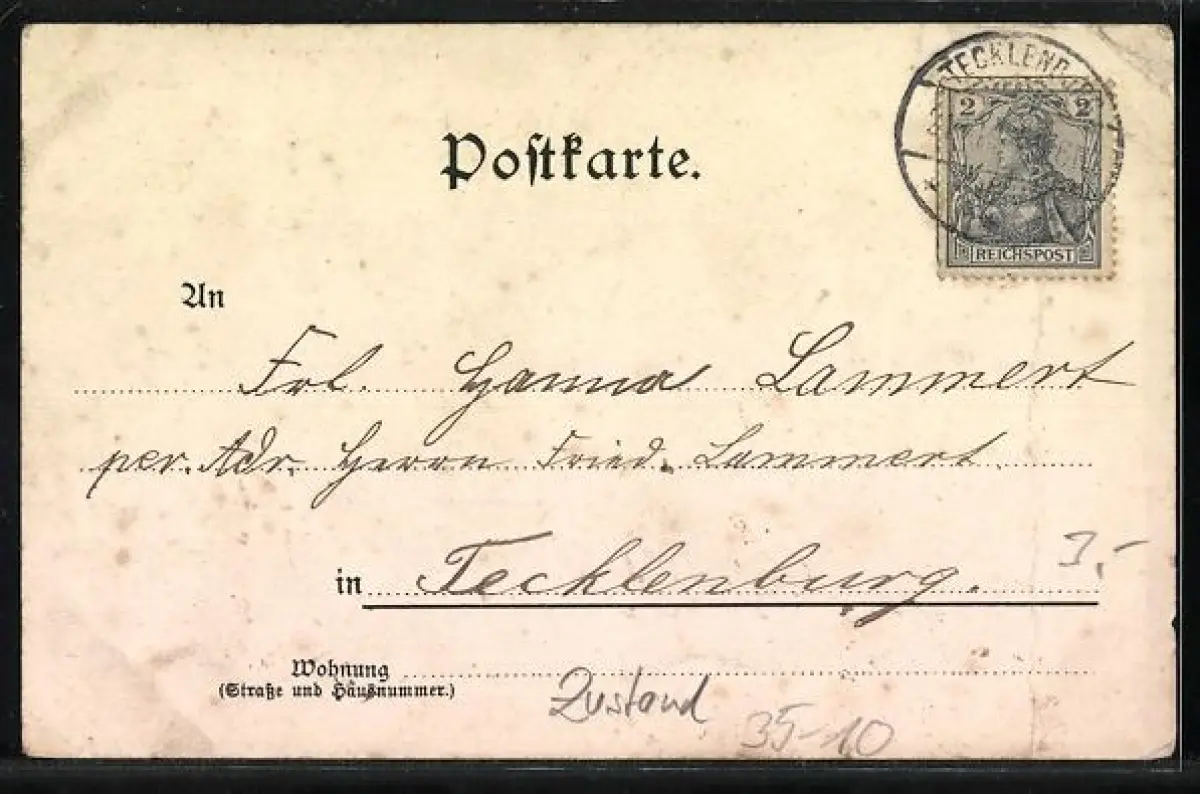 TECKLENB
2 2
REICHSPOST
Poſtkarte.
An
Frl. Hanna Lammert
per. Adr. Herrn Fried. Lammert.
in Tecklenburg.
3.-
Wohnung
(Straße und Hausnummer.)
Zustand
35-10